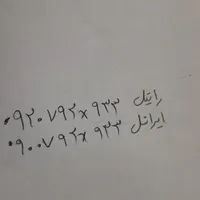 رایتل ۰۹۲۰۷۹۲x۹۳۳
ایرانسل ۰۹۰۰۷۹۲x۹۳۳